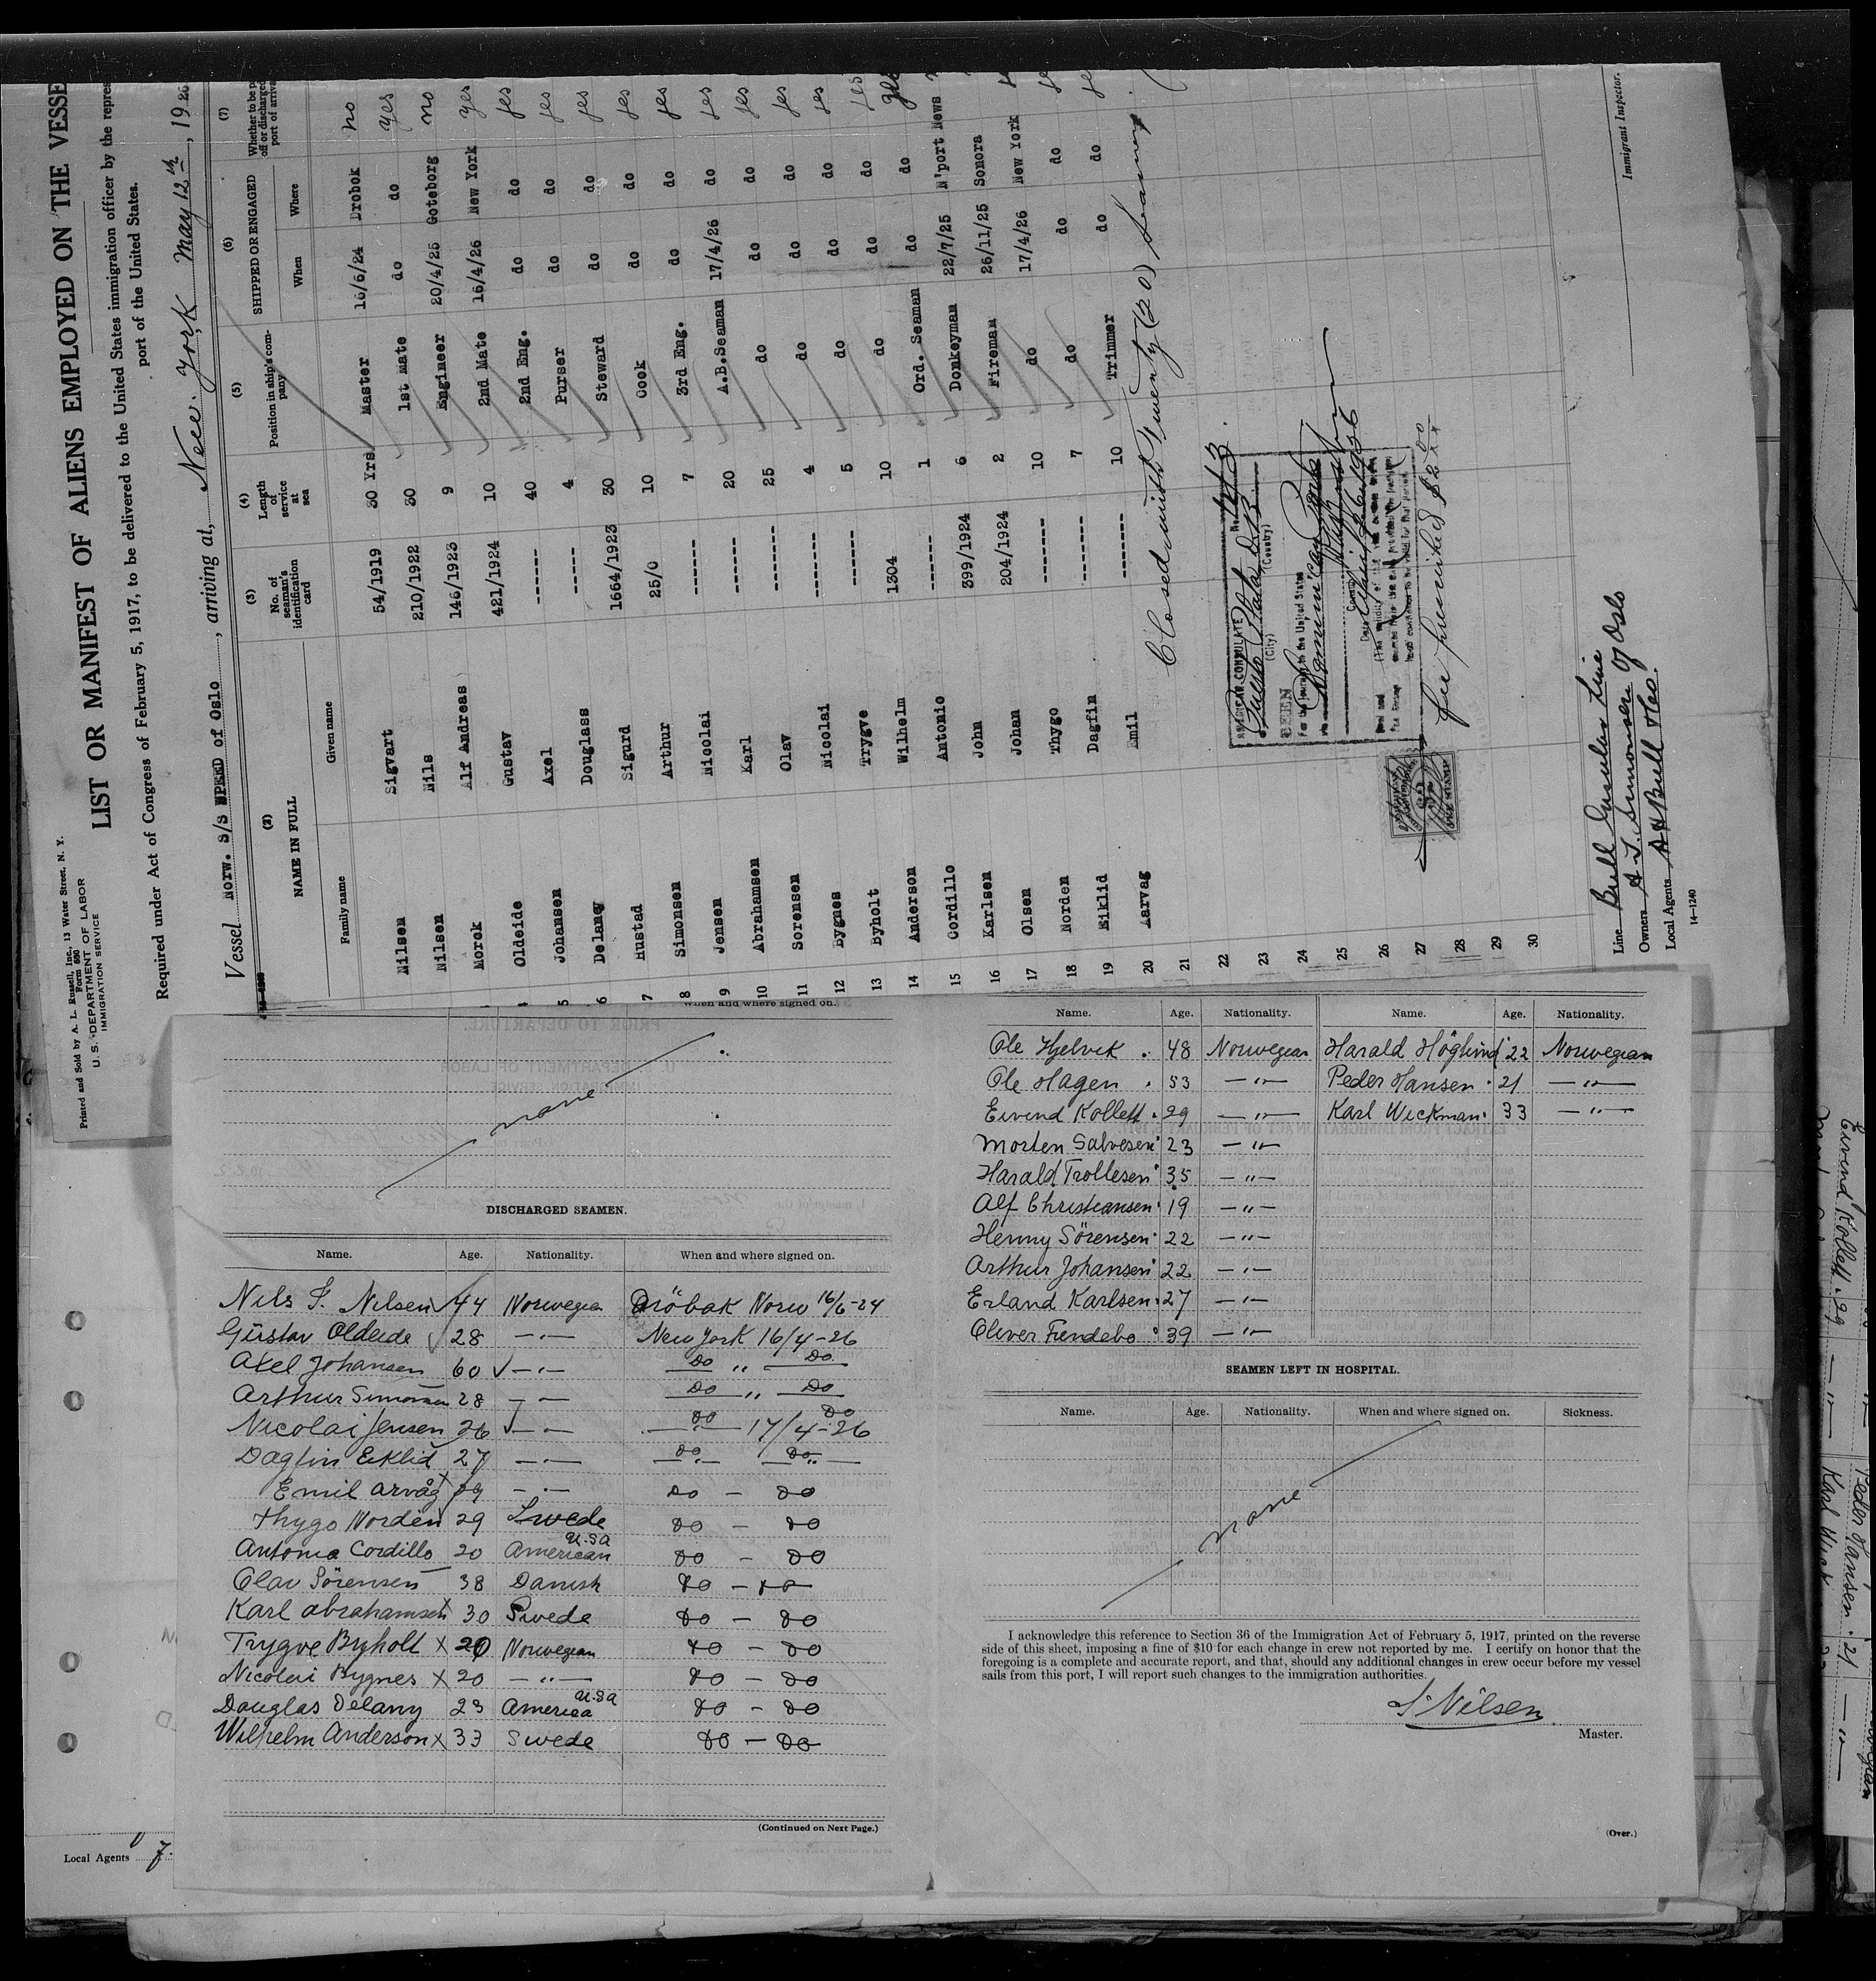 Printed and Sold by A. L. Russell, Inc., 13 Water Street, N. Y.
Form 680
U. S. DEPARTMENT OF LABOR
IMMIGRATION SERVICE
LIST OR MANIFEST OF ALIENS EMPLOYED ON THE VESSE
Required under Act of Congress of February 5, 1917, to be delivered to the United States immigration officer by the repres
port of the United States.
Vessel Norw. S/S SPEED of Oslo, arriving at, New York May 12th, 1926
(2) (3) (4) (5) (6) (7)
NAME IN FULL No. of seaman's identification card Length of service at sea Position in ship's company SHIPPED OR ENGAGED Whether to be p off or discharged port of arriva
Family name Given name When Where
Nilsen Sigvart 54/1919 30 Yrs Master 16/6/24 Drobok no
Nilsen Nils 210/1922 30 1st Mate do do yes
Morck Alf Andreas 146/1923 9 Engineer 20/4/25 Goteborg no
Oldeide Gustav 421/1924 10 2nd Mate 16/4/26 New York yes
5 Johansen Axel ------ 40 2nd Eng. do do yes
6 Delaney Douglass ------ 4 Purser do do yes
7 Hustad Sigurd 1664/1923 30 Steward do do yes
8 Simonsen Arthur 25/0 10 Cook do do yes
9 Jensen Nicolai ------- 7 3rd Eng. do do yes
10 Abrahamsen Karl ------- 20 A.B.Seaman 17/4/26 do yes
11 Sorensen Olav ------- 25 do do do yes
12 Bygnes Nicolai ------- 4 do do do yes
13 Byholt Trygve ------ 5 do do do yes
14 Anderson Wilhelm 1304 10 do do do yes
15 Cordillo Antonio ------ 1 Ord. Seaman do do yes
16 Karlsen John 399/1924 6 Donkeyman 22/7/25 N'port News
17 Olsen Johan 204/1924 2 Fireman 26/11/25 Sonora
18 Norden Thygo ------- 10 do 17/4/26 New York
19 Eiklid Dagfin ------- 7 do do do ye
20 Aarvag Emil ------- 10 Trimmer do do yes
21 Closed with twenty (20) Seamen.
22
23
24
25
26
27
28
29
30
AMERICAN CONSULATE
Puerto Plata D.R.
(City) (Country)
SEEN
For the journey to the United States
Dominican
Country
Fee furnished $2.00
Line Bull Insular Line
Owners A. I. Simonsen of Oslo
Local Agents A H Bull & Co.
14—1240
Immigrant Inspector.
When and where signed on.
none
DISCHARGED SEAMEN.
Name. Age. Nationality. When and where signed on.
Nils S. Nilsen 44 Norwegian Dröbak Norw 16/6-24
Gustav Oldeide 28 —"— New York 16/4-26
Axel Johansen 60 —"— Do " Do
Arthur Simonsen 28 —"— Do " Do
Nicolai Jensen 26 —"— Do 17/4-26
Dagfin Eiklid 27 —"— Do Do
Emil Arvåg 29 —"— Do — Do
Thygo Norden 29 Swede Do — Do
Antonio Cordillo 20 American U.S.A Do — Do
Olav Sörensen 38 Danish Do — Do
Karl Abrahamsen 30 Swede Do — Do
Trygve Byholt X 20 Norwegian Do — Do
Nicolai Bygnes X 20 —"— Do — Do
Douglas Delany 23 America U.S.A Do — Do
Wilhelm Anderson X 33 Swede Do — Do
(Continued on Next Page.)
Local Agents
Name. Age. Nationality. Name. Age. Nationality.
Ole Hjelvik 48 Norwegian Harald Höglund 22 Norwegian
Ole Hagen 53 —"— Peder Hansen 21 —"—
Eivind Kollett 29 —"— Karl Wickman 33 —"—
Morten Salvesen 23 —"—
Harald Trollesen 35 —"—
Alf Christiansen 19 —"—
Henny Sörensen 22 —"—
Arthur Johansen 22 —"—
Erland Karlsen 27 —"—
Oliver Fundebo 39 —"—
SEAMEN LEFT IN HOSPITAL.
Name. Age. Nationality. When and where signed on. Sickness.
none
I acknowledge this reference to Section 36 of the Immigration Act of February 5, 1917, printed on the reverse
side of this sheet, imposing a fine of $10 for each change in crew not reported by me. I certify on honor that the
foregoing is a complete and accurate report, and that, should any additional changes in crew occur before my vessel
sails from this port, I will report such changes to the immigration authorities.
S Nilsen
Master.
(Over.)
Eivind Kollett 29 —"— Karl Wick
Peder Hansen 21 —"—